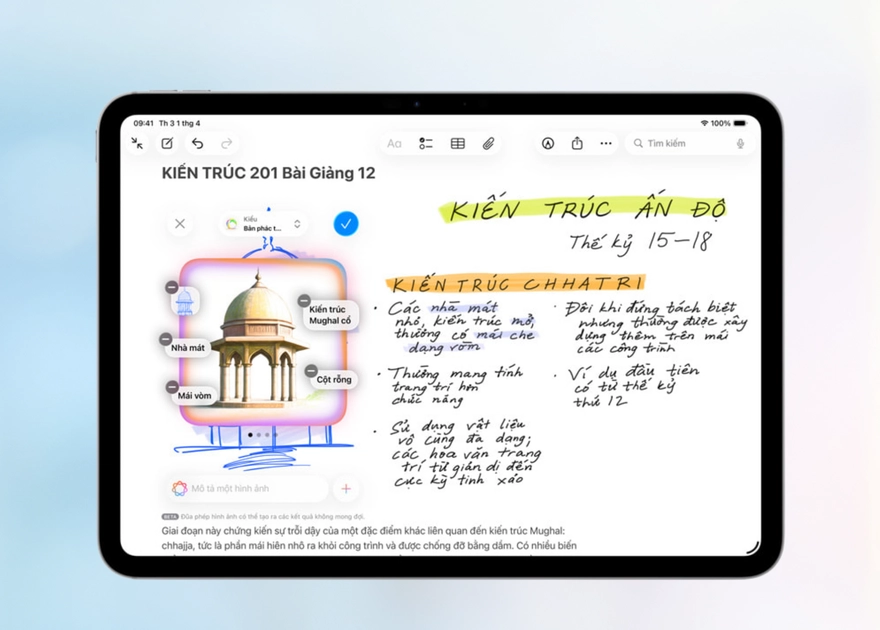 09:41 Th 3 1 thg 4
100%
Aa
Tìm kiếm
KIẾN TRÚC 201 Bài Giảng 12
Kiểu
Bản phác t...
Kiến trúc
Mughal cổ
Nhà mát
Cột rỗng
Mái vòm
Mô tả một hình ảnh
BETA Đũa phép hình ảnh có thể tạo ra các kết quả không mong đợi.
KIẾN TRÚC ẤN ĐỘ
Thế kỷ 15-18
KIẾN TRÚC CHHATRI
Các nhà mát
nhỏ, kiến trúc mở,
thường có mái che
dạng vòm
Thường mang tính
trang trí hơn
chức năng
Sử dụng vật liệu
vô cùng đa dạng;
các hoa văn trang
trí từ giản dị đến
cực kỳ tinh xảo
Đôi khi đứng tách biệt
nhưng thường được xây
dựng thêm trên mái
các công trình
Ví dụ đầu tiên
có từ thế kỷ
thứ 12
Giai đoạn này chứng kiến sự trỗi dậy của một đặc điểm khác liên quan đến kiến trúc Mughal:
chhajja, tức là phần mái hiên nhô ra khỏi công trình và được chống đỡ bằng dầm. Có nhiều biến